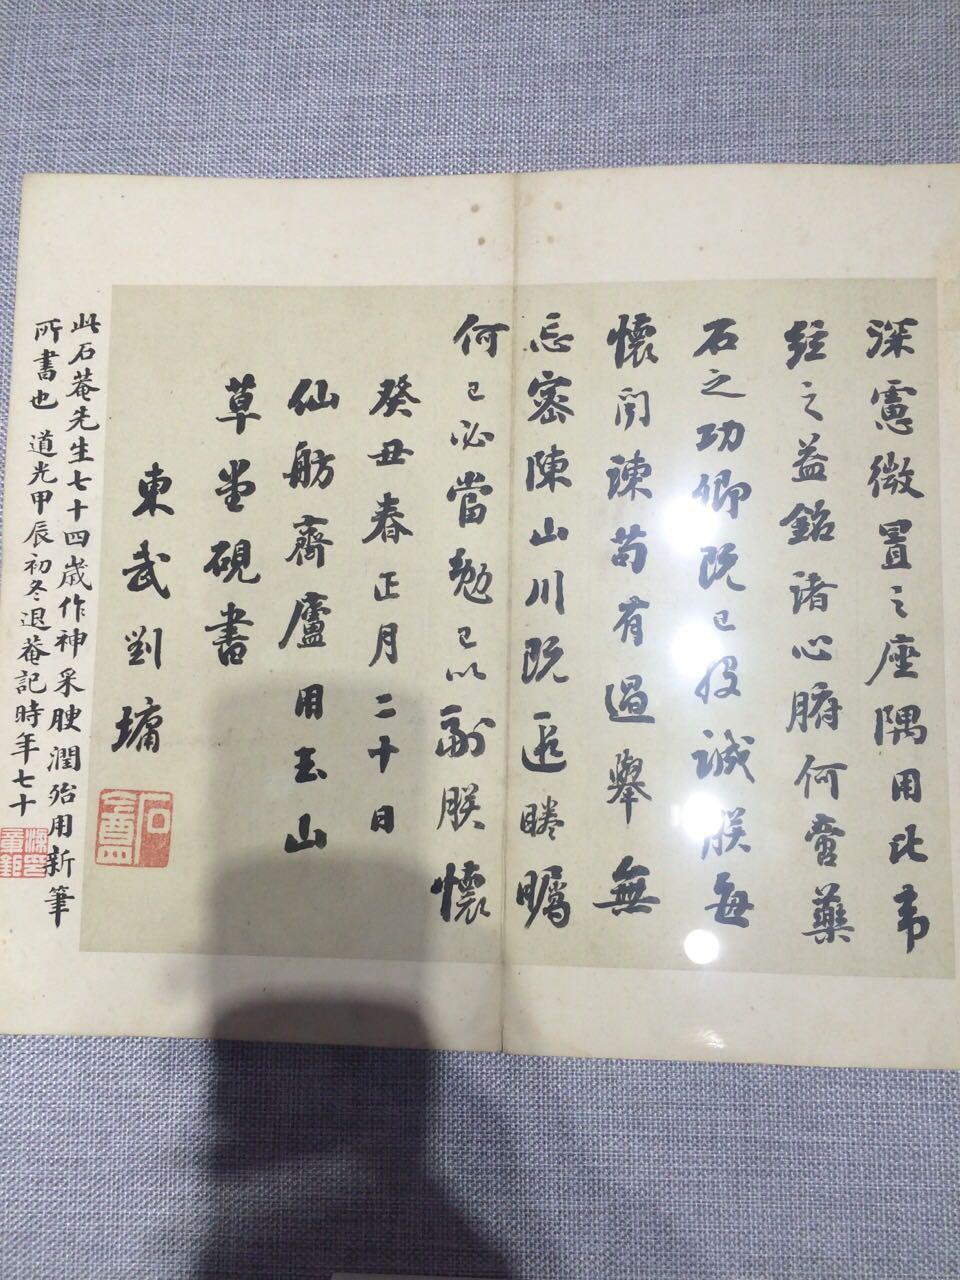 深憲微置之座隅用比韋
弦之益銘諸心腑何啻藥
石之功卿既已投誠朕每
懷聞諫苟有過舉無
忘密陳山川既遥睠矚
何已必當勉已以副朕懷
癸丑春正月二十日
仙舫齋廬用玉山
草堂硯書
東武劉墉
石
菴
此石菴先生七十四歲作神采腴潤殆用新筆
所書也 道光甲辰初冬退菴記時年七十